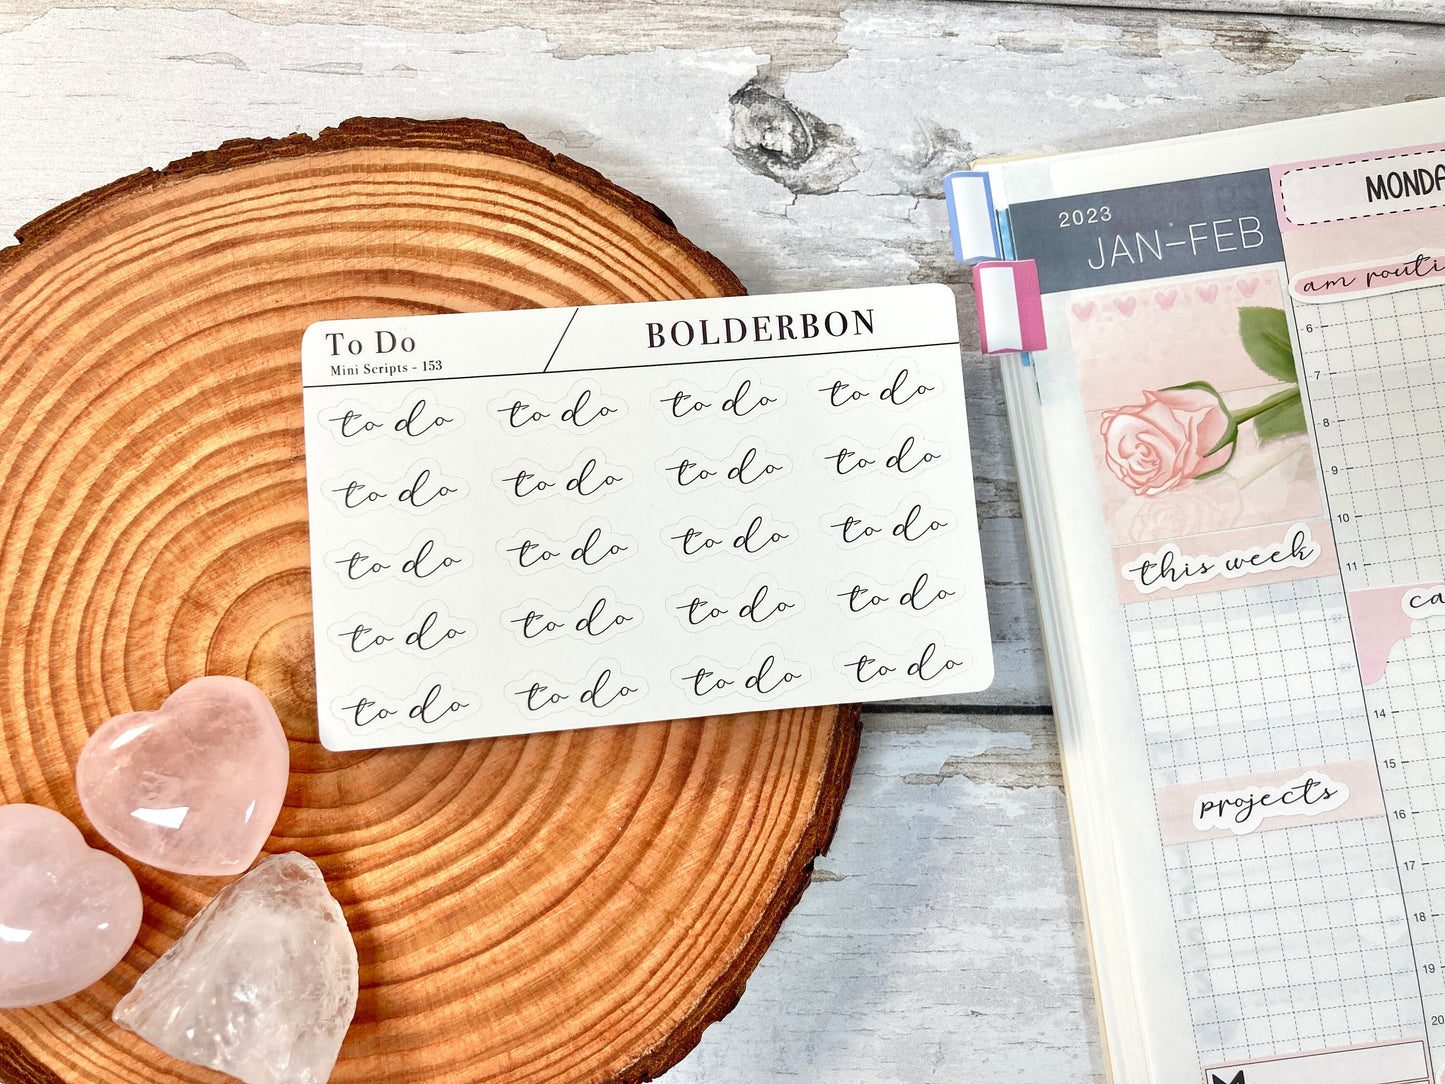 To Do
Mini Scripts - 153
BOLDERBON
to do to do to do to do
to do to do to do to do
to do to do to do to do
to do to do to do to do
to do to do to do to do
2023
JAN–FEB
this week
projects
am
6
7
8
9
10
11
14
15
16
17
18
19
20